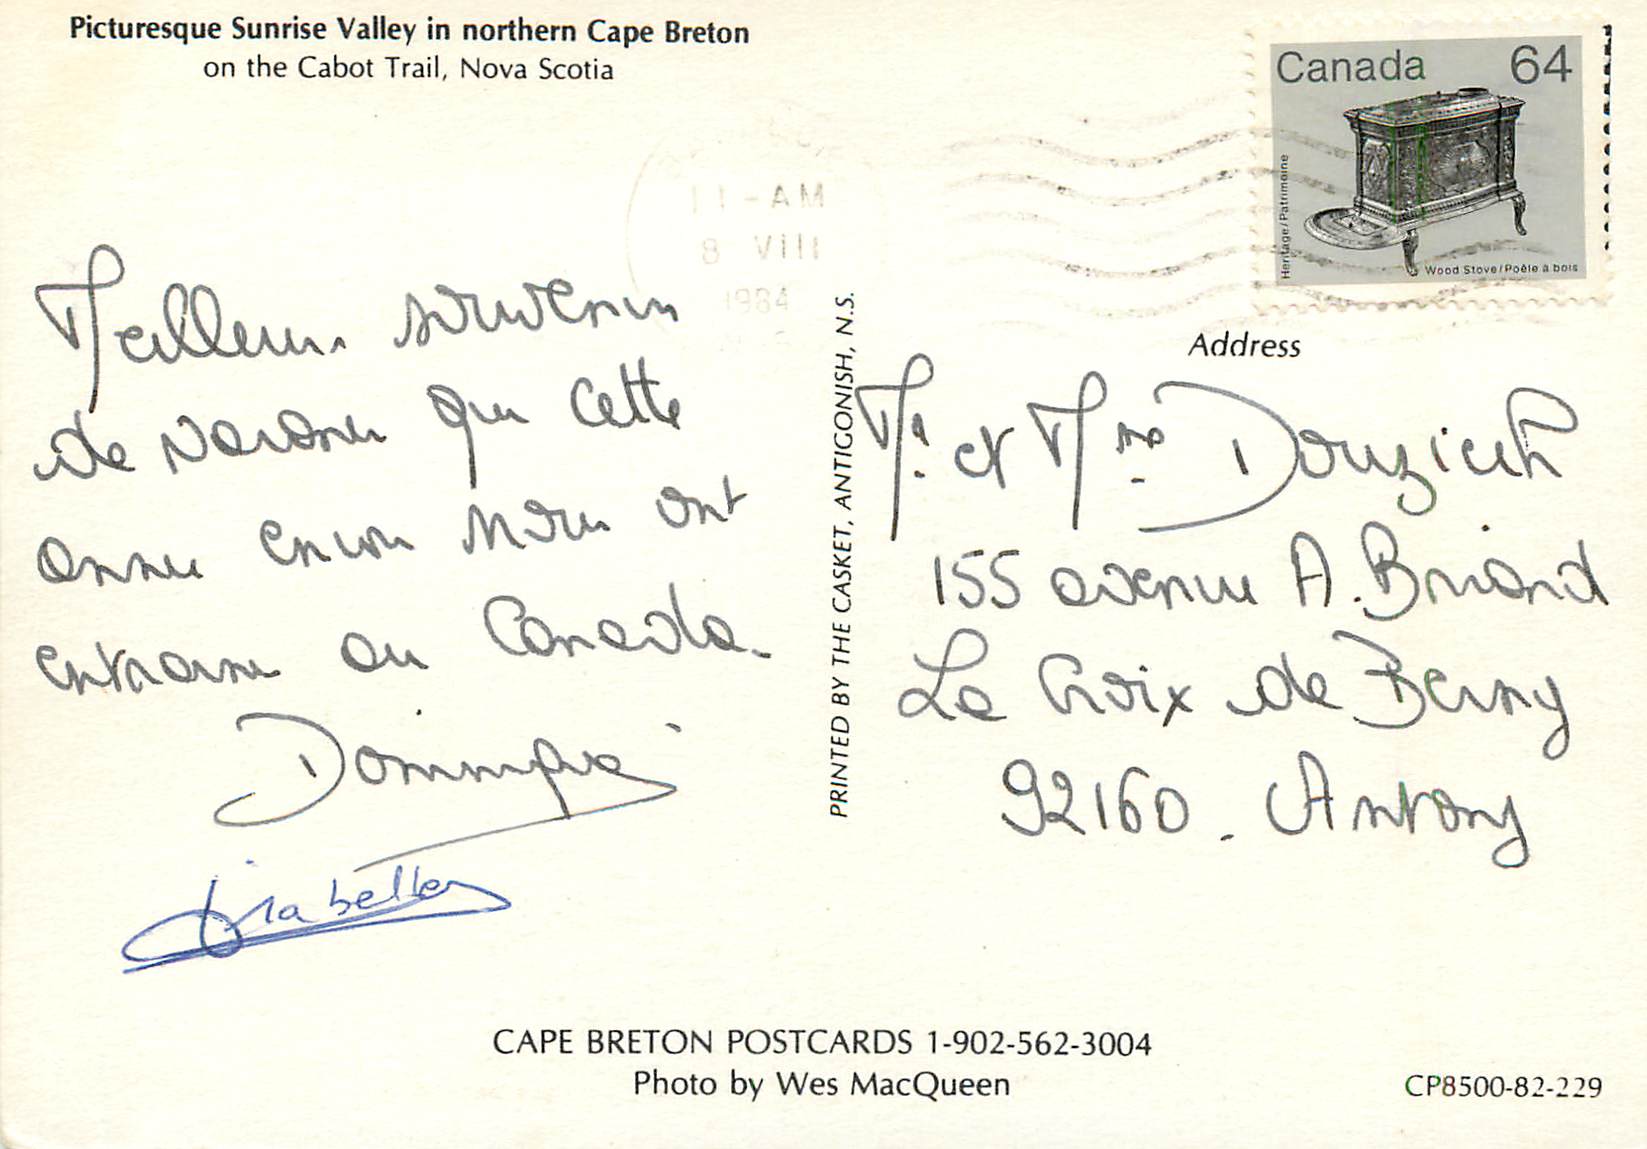 Picturesque Sunrise Valley in northern Cape Breton
on the Cabot Trail, Nova Scotia
Canada 64
Heritage/Patrimoine
Wood Stove/Poêle à bois
11-AM
8 VIII
1984
Meilleurs souvenirs
de vacances qui cette
année encore nous ont
entrainés au Canada.
Dominique
Isabelle
PRINTED BY THE CASKET, ANTIGONISH, N.S.
Address
Mr. et Mme. Douziech
155 avenue A. Briand
La Croix de Berny
92160. Antony
CAPE BRETON POSTCARDS 1-902-562-3004
Photo by Wes MacQueen
CP8500-82-229